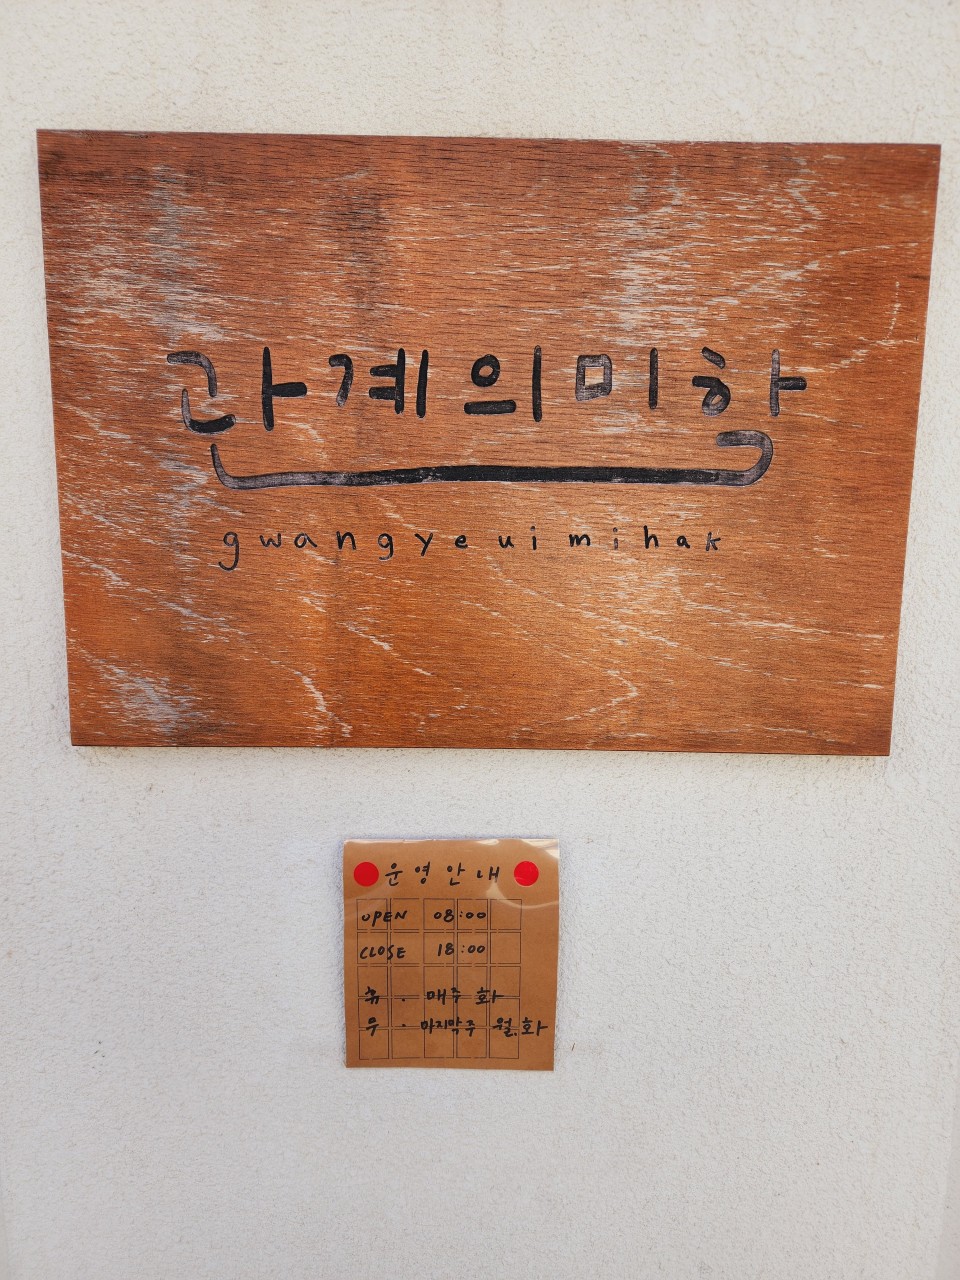 관계의미학
gwangyeuimihak
운영안내
OPEN 08:00
CLOSE 18:00
휴 · 매주 화
무 · 마지막주 월.화